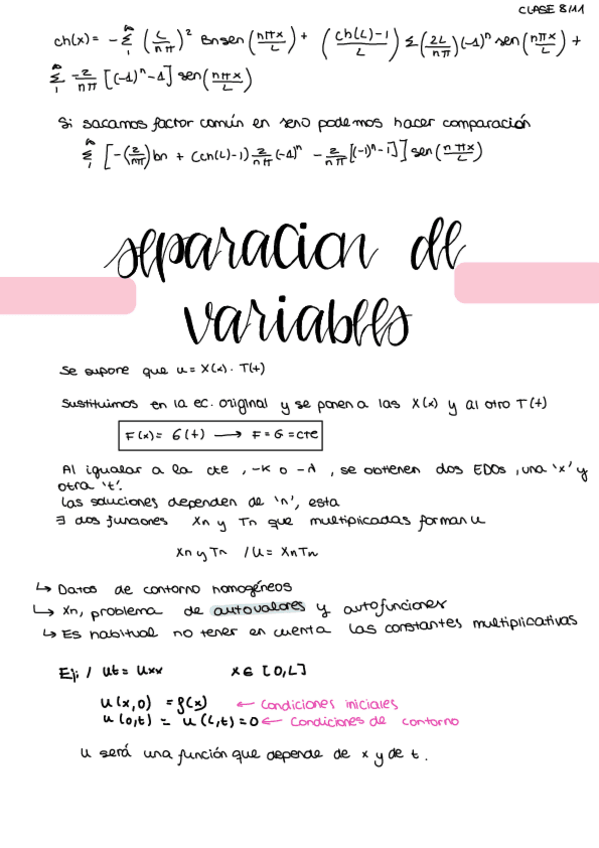 CLASE 8/11
ch(x) = - ∞Σ1 (L/nπ)² Bn sen(nπx/L) + (ch(L)-1/L) Σ(2L/nπ)(-1)ⁿ sen(nπx/L) +
∞Σ1 -2/nπ [(-1)ⁿ-1] sen(nπx/L)
Si sacamos factor común en seno podemos hacer comparación
∞Σ1 [-(2/nπ)bn + (ch(L)-1) 2/nπ (-1)ⁿ - 2/nπ [(-1)ⁿ-1]] sen(nπx/L)
separacion de
variables
Se supone que u = X(x) · T(t)
Sustituimos en la ec. original y se ponen a las X(x) y al otro T(t)
F(x) = G(t) → F = G = cte
Al igualar a la cte, -K o -λ, se obtienen dos EDOs, una 'x' y
otra 't'.
las soluciones dependen de 'n', esta
∃ dos funciones Xn y Tn que multiplicadas forman u
Xn y Tn / U = XnTn
↳ Datos de contorno homogéneos
↳ Xn, problema de autovalores y autofunciones
↳ Es habitual no tener en cuenta las constantes multiplicativas
Ej: / ut = uxx x ∈ [0,L]
u(x,0) = f(x) ← Condiciones iniciales
u(0,t) = u(L,t) = 0 ← Condiciones de contorno
u será una función que depende de x y de t.